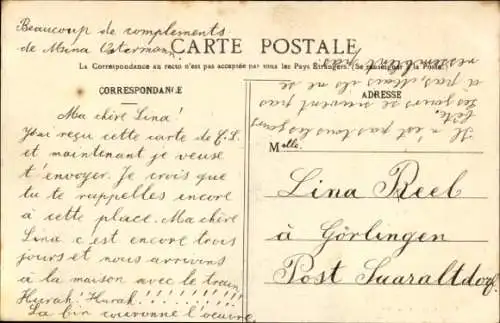 Beaucoup de complements
de Mina Ostermann
CARTE POSTALE
La Correspondance au recto n'est pas acceptée par tous les Pays Étrangers. (Se renseigner à la Poste)
CORRESPONDANCE
Ma chère Lina!
J'ai reçu cette carte de
et maintenant je veuse
t envoyer. Je crois que
tu te rappelles encore
à cette place. Ma chère
Lina c'est encore trois
jours et nous arrivons
à la maison avec le train
Hurah! Hurah!!!!!!!!!
La fin couronne l'oeuvre
ADRESSE
Il n'est pas tous les jours
fête,
les jours se suivent pas
à pas, mais ils ne se
ressemblent pas
Mlle.
Lina Reel
à Görlingen
Post Saaraltdorf.